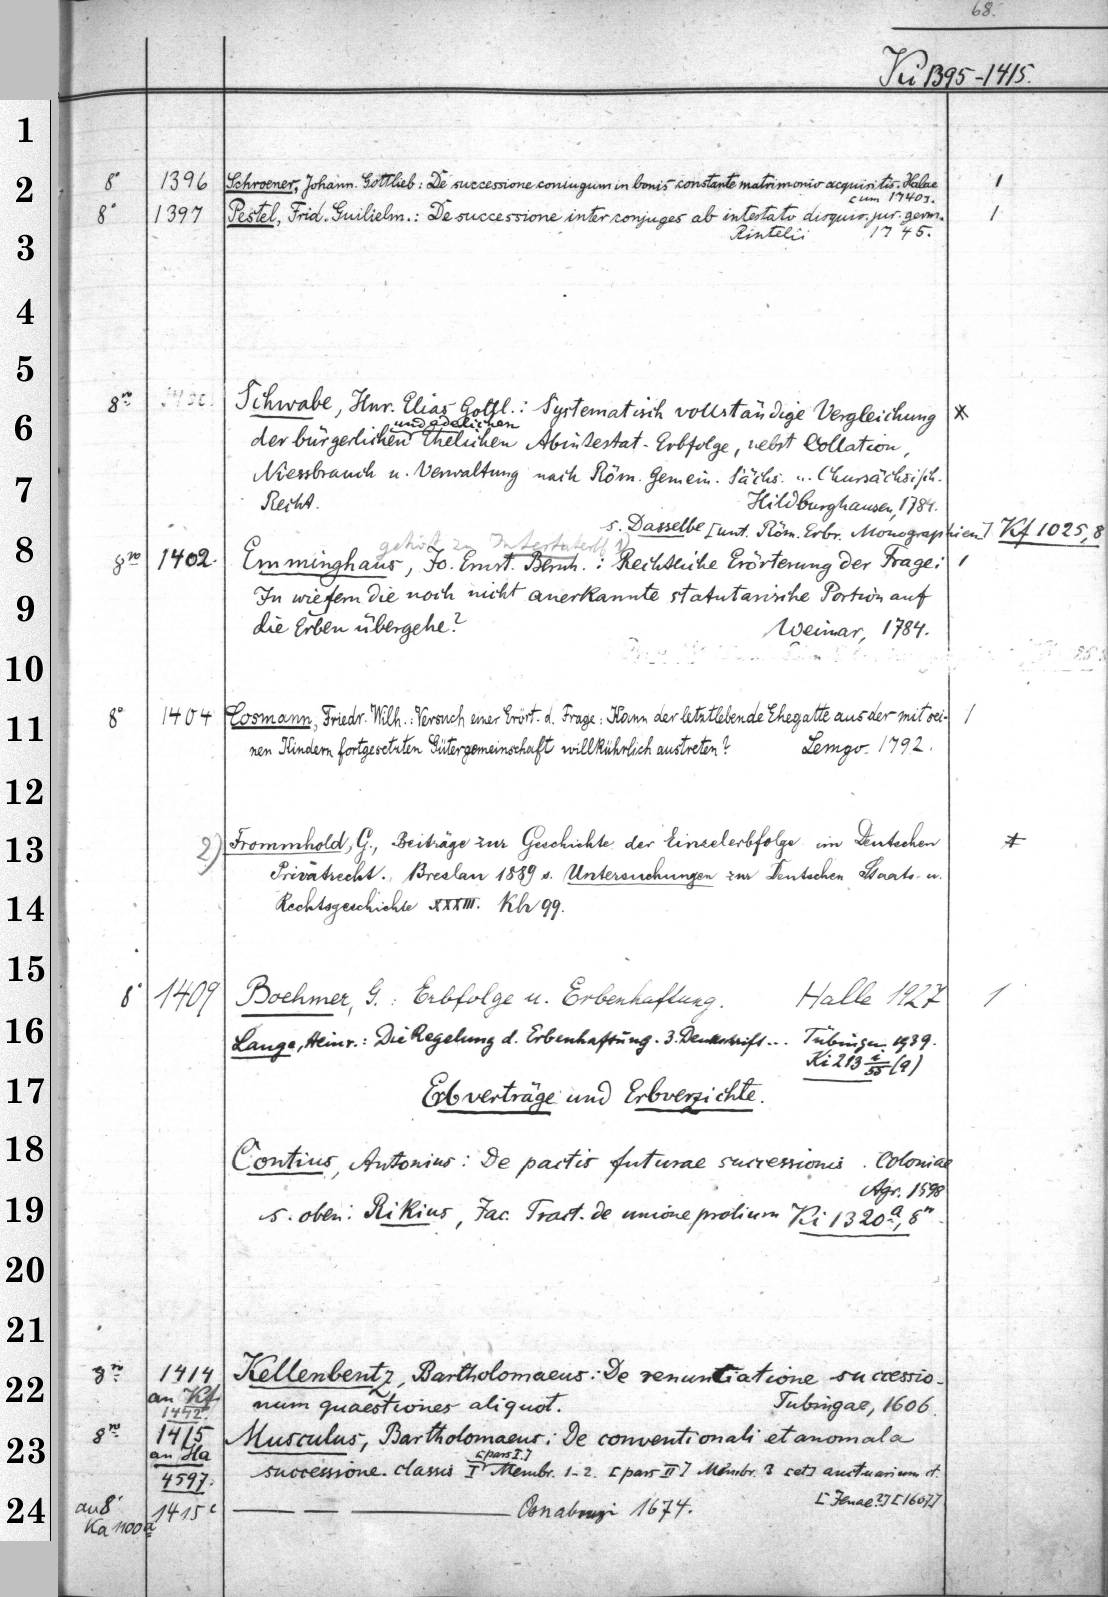 68.
Ki 1395-1415.
1
2
8° 1396 Schroener, Johann. Gottlieb: De successione coniugum in bonis constante matrimonio acquisitis. Halae 1
cum 1740.
8° 1397 Pestel, Frid. Guilielm.: De successione inter conjuges ab intestato disquis. jur. germ. 1
Rintelii 1745.
3
4
5
8º Schwabe, Hnr. Elias Gottl.: Systematisch vollständige Vergleichung *
6
und adelichen
der bürgerlichen Ehelichen Abintestat-Erbfolge, nebst Collation,
Niessbrauch u. Verwaltung nach Röm. Gemein. Sächs. u. Chursächsisch.
7
Recht. Hildburghausen, 1784.
s. Dasselbe [unt. Röm. Erbr. Monographien] Kf 1025, 8
8
gehört zu Intestaterbf.
8vo 1402. Emminghaus, Jo. Ernst. Bernh.: Rechtliche Erörterung der Frage: 1
In wiefern die noch nicht anerkannte statutarische Portion auf
9
die Erben übergehe? Weimar, 1784.
10
8° 1404 Cosmann, Friedr. Wilh.: Versuch einer Erört. d. Frage: Kann der letztlebende Ehegatte aus der mit sei- 1
11
nen Kindern fortgesetzten Gütergemeinschaft willkührlich austreten? Lemgo. 1792.
12
13
2) Frommhold, G., Beiträge zur Geschichte der Einzelerbfolge im Deutschen *
Privatrecht. Breslau 1889 s. Untersuchungen zur Deutschen Staats- u.
14
Rechtsgeschichte XXXIII. Kb 99.
15
8° 1409 Boehmer, G.: Erbfolge u. Erbenhaftung. Halle 1927 1
16
Lange, Heinr.: Die Regelung d. Erbenhaftung. 3. Denkschrift... Tübingen 1939.
Ki 213 i/55 (9)
17
Erbverträge und Erbverzichte.
18
Contius, Antonius: De pactis futurae successionis. Coloniae
Agr. 1598
19
s. oben: Rikius, Jac. Tract. de unione prolium Ki 1320a, 8º.
20
21
8º 1414 Kellenbentz, Bartholomaeus: De renuntiatione successio-
22
an Kf
1442. num quaestiones aliquot. Tubingae, 1606.
8vo 1415 Musculus, Bartholomaeus: De conventionali et anomala
23
an Ha
[pars I.]
4597. successione. classis I Membr. 1-2. [pars II] Membr. 3 [et] auctuarium et.
[Jenae?] [1607]
24
an 8° 1415c — — — Osnabrugi 1674.
Ka 1100a